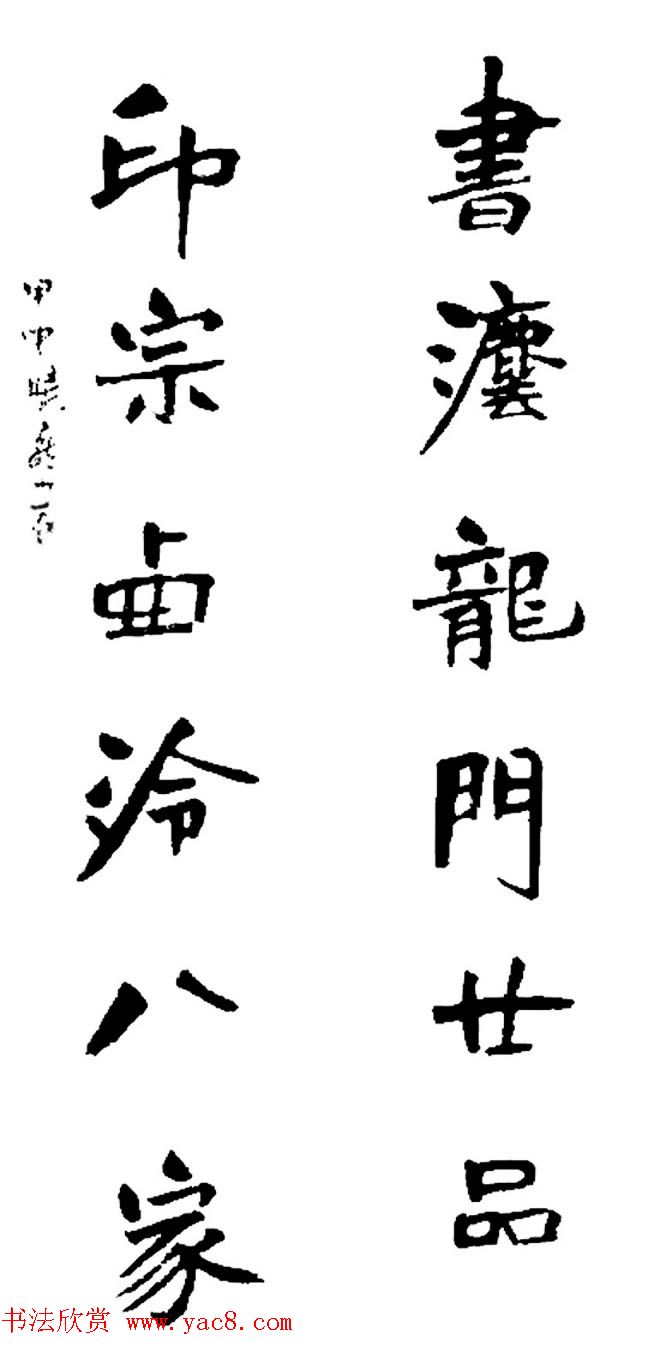 書灋龍門廿品
印宗西泠八家
甲申
书法欣赏 www.yac8.com